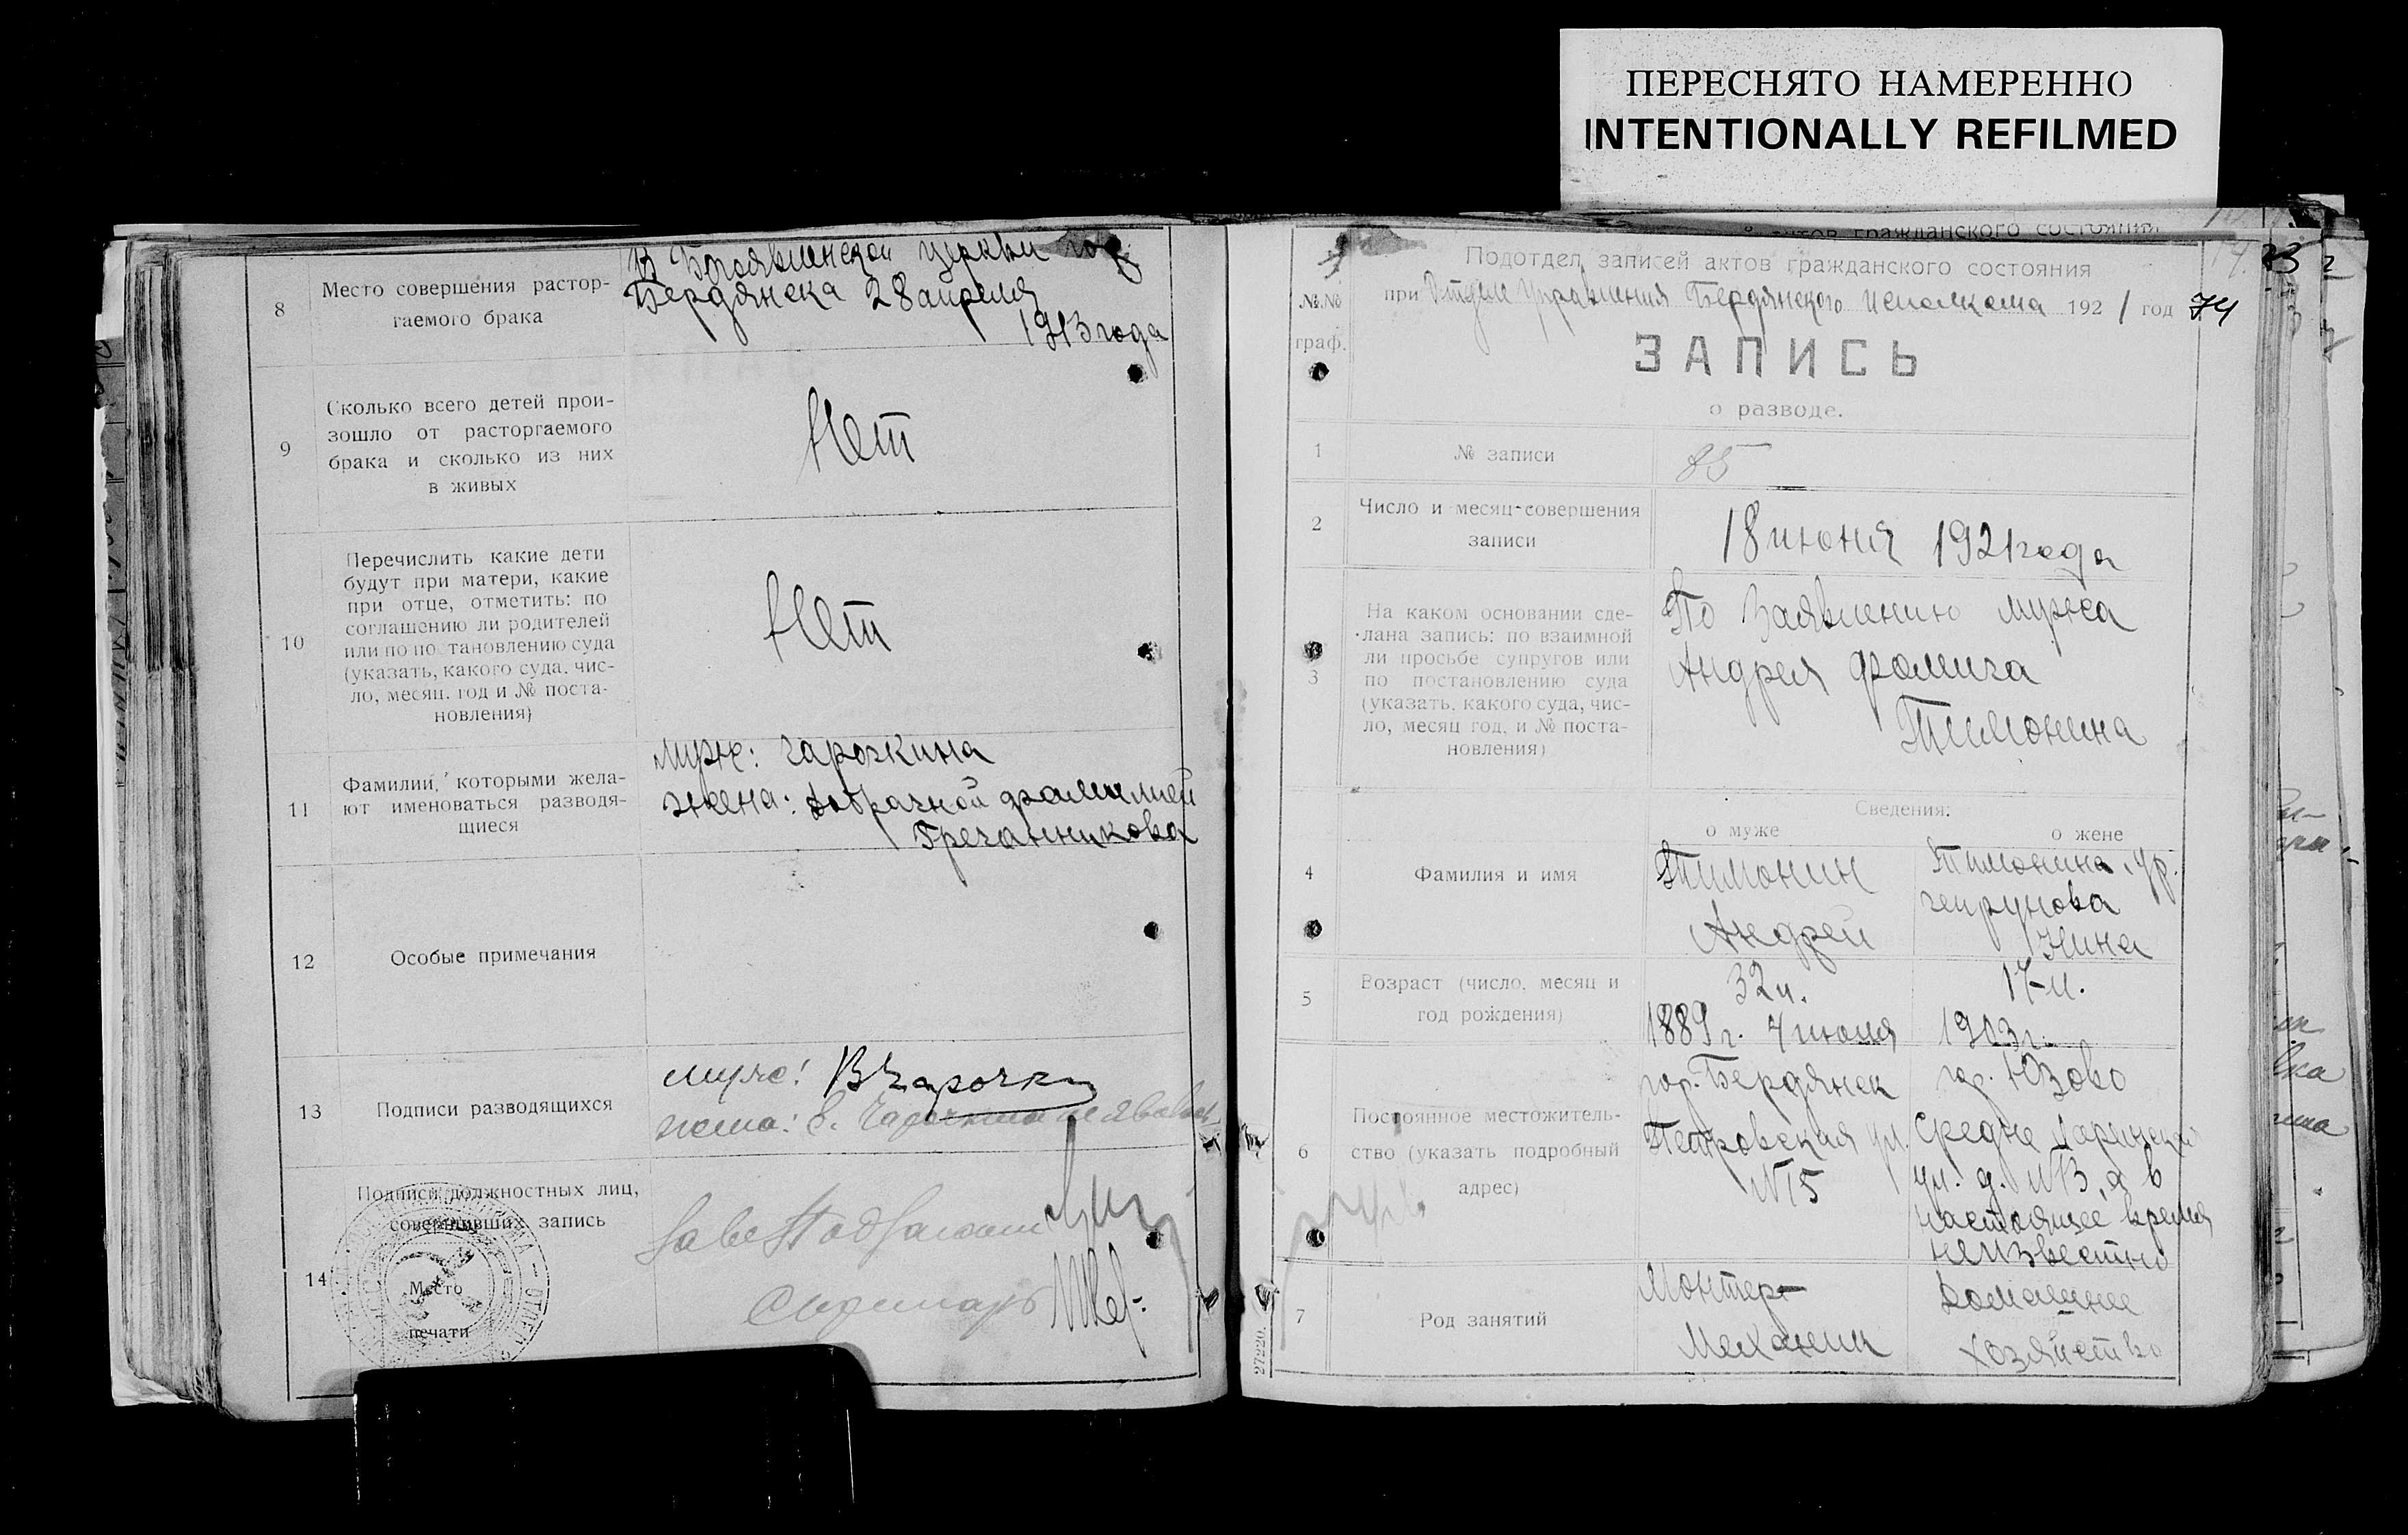 ПЕРЕСНЯТО НАМЕРЕННО
INTENTIONALLY REFILMED
8
Место совершения растор-
гаемого брака
В Богоявленской церкви гор
Бердянска 28 апреля
1913 года
9
Сколько всего детей прои-
зошло от расторгаемого
брака и сколько из них
в живых
Нет
10
Перечислить какие дети
будут при матери, какие
при отце, отметить: по
соглашению ли родителей
или по по тановлению суда
(указать, какого суда, чис-
ло, месяц, год и № поста-
новления)
Нет
11
Фамилии, которыми жела-
ют именоваться разводя-
щиеся
муж: Чарочкина
жена: добрачной фамилией
Гречанникова
12
Особые примечания
13
Подписи разводящихся
муж: В Чарочки
жена:
14
Подписи должностных лиц,
совершивших запись
Место
печати
Подотдел записей актов гражданского состояния
при Отделе Управления Бердянского исполкома 1921 год
74
№№
граф.
ЗАПИСЬ
о разводе.
1
№ записи
85
2
Число и месяц совершения
записи
18 июня 1921 года
3
На каком основании сде-
лана запись: по взаимной
ли просьбе супругов или
по постановлению суда
(указать, какого суда, чис-
ло, месяц год, и № поста-
новления)
По Заявлению мужа
Андрея Фомича
Тимонина
Сведения:
о муже
о жене
4
Фамилия и имя
Тимонин
Андрей
Тимонина, ур.
Чепрунова
Нина
5
Возраст (число, месяц и
год рождения)
32 л.
1889 г. 4 июля
17 л.
1903 г.
6
Постоянное местожитель-
ство (указать подробный
адрес)
гор. Бердянск
Петровская ул.
№ 5
гор. Юзово
Средне Ларинская
ул. д. №3, а в
настоящее время
неизвестно
7
Род занятий
Монтер-
Механик
Домашнее
хозяйство
27220.